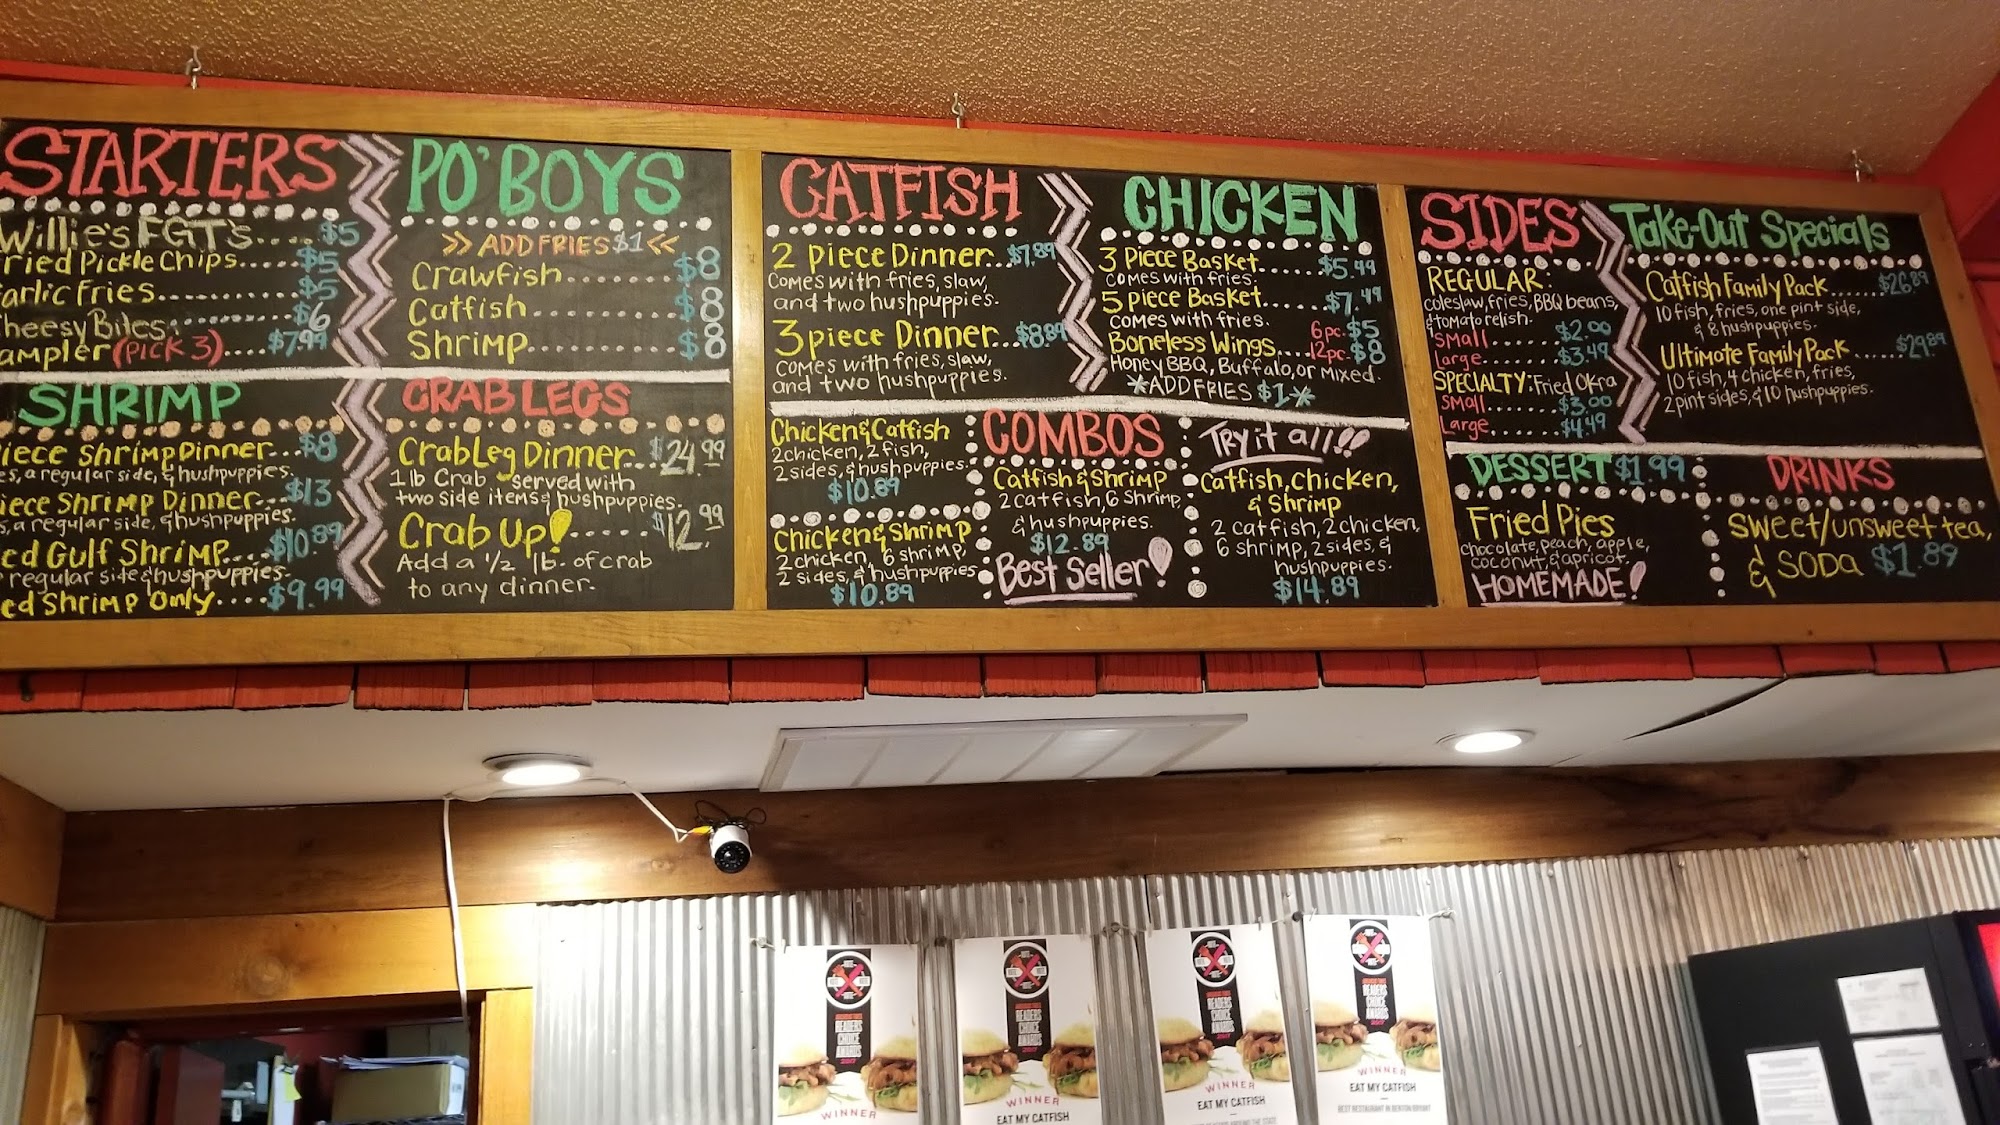 STARTERS
Willie's FGT's.... $5
Fried Pickle Chips..... $5
Garlic Fries........... $5
Cheesy Bites........... $6
Sampler (PICK 3).... $7.99
PO' BOYS
>> ADD FRIES $1 <<
Crawfish........ $8
Catfish......... $8
Shrimp......... $8
SHRIMP
Piece Shrimp Dinner... $8
a regular side, & hushpuppies.
Piece Shrimp Dinner... $13
a regular side, & hushpuppies.
Gulf Shrimp... $10.89
regular side & hushpuppies.
Shrimp Only.... $9.99
CRAB LEGS
Crab Leg Dinner... $24.99
1 lb Crab served with
two side items & hushpuppies.
Crab Up!........ $12.99
Add a 1/2 lb. of crab
to any dinner.
CATFISH
2 piece Dinner... $7.89
comes with fries, slaw,
and two hushpuppies.
3 piece Dinner... $8.89
comes with fries, slaw,
and two hushpuppies.
CHICKEN
3 Piece Basket....... $5.49
comes with fries.
5 piece Basket...... $7.49
comes with fries.
Boneless Wings.... 6pc. $5
12pc. $8
Honey BBQ, Buffalo, or Mixed.
*ADD FRIES $1*
COMBOS
Chicken & Catfish
2 chicken, 2 fish,
2 sides, & hushpuppies.
$10.89
Chicken & Shrimp
2 chicken, 6 shrimp,
2 sides, & hushpuppies
$10.89
Catfish & Shrimp
2 catfish, 6 Shrimp,
& hushpuppies.
$12.89
Best Seller!
Try it all!!
Catfish, Chicken,
& Shrimp
2 catfish, 2 chicken,
6 shrimp, 2 sides, &
hushpuppies.
$14.89
SIDES
REGULAR:
coleslaw, fries, BBQ beans,
& tomato relish.
Small........ $2.00
Large........ $3.49
SPECIALTY: Fried Okra
Small........ $3.00
Large........ $4.49
Take-Out Specials
Catfish Family Pack........ $26.89
10 fish, fries, one pint side,
& 8 hushpuppies.
Ultimate Family Pack...... $29.89
10 fish, 4 chicken, fries,
2 pint sides, & 10 hushpuppies.
DESSERT $1.99
Fried Pies
chocolate, peach, apple,
coconut, & apricot.
HOMEMADE!
DRINKS
Sweet/unsweet tea,
& SODA $1.89
READERS
CHOICE
AWARDS
2017
WINNER
READERS
CHOICE
AWARDS
2017
WINNER
EAT MY CATFISH
READERS
CHOICE
AWARDS
2017
WINNER
EAT MY CATFISH
READERS
CHOICE
AWARDS
2017
WINNER
EAT MY CATFISH
BEST RESTAURANT IN BENTON/BRYANT